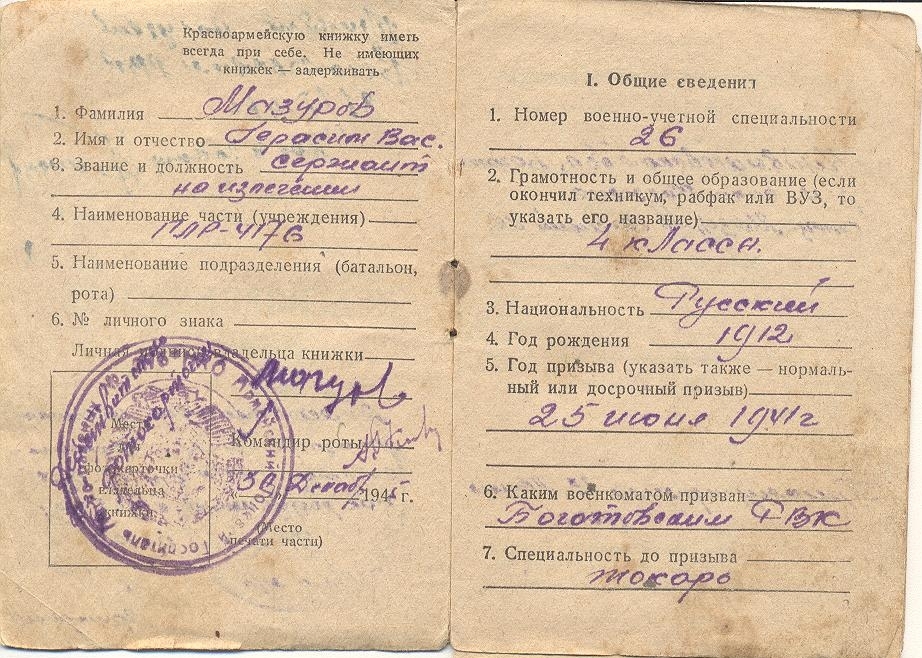 Красноармейскую книжку иметь
всегда при себе. Не имеющих
книжек — задерживать
1. Фамилия Мазуров
2. Имя и отчество Герасим Вас.
3. Звание и должность сержант
на излечении
4. Наименование части (учреждения)
ПЛР-4176
5. Наименование подразделения (батальон,
рота)
6. № личного знака
Личная подпись владельца книжки
Место
фотокарточки
владельца
книжки
Командир роты
30 Декабр 194 г.
(Место
печати части)
Госпиталь
I. Общие сведения
1. Номер военно-учетной специальности
26
2. Грамотность и общее образование (если
окончил техникум, рабфак или ВУЗ, то
указать его название)
4 класса.
3. Национальность Русский
4. Год рождения 1912
5. Год призыва (указать также — нормаль-
ный или досрочный призыв)
25 июня 1941 г
6. Каким военкоматом призван
Боготовским РВК
7. Специальность до призыва
токарь